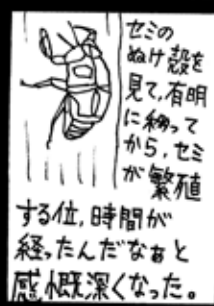 セミの
ぬけ殻を
見て,有明
に縁って
から,セミ
が繁殖
する位,時間が
経ったんだなぁと
感慨深くなった。